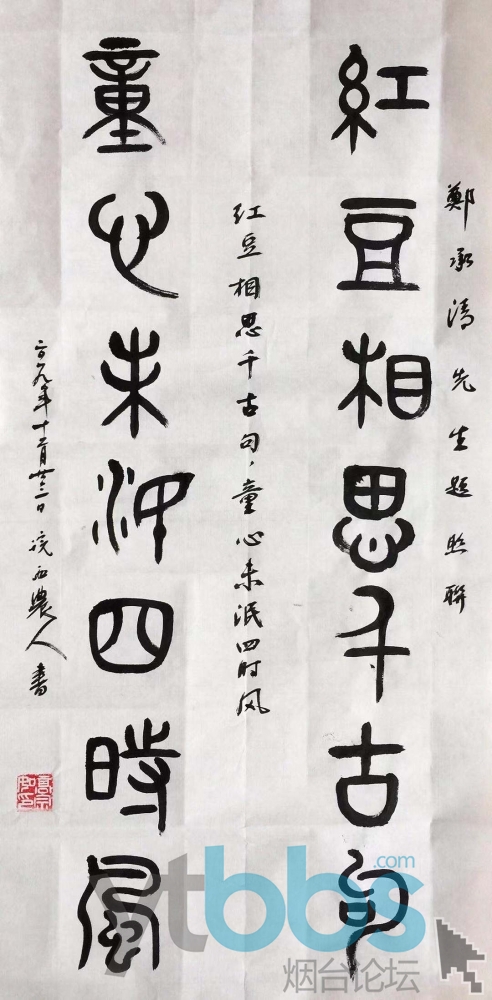 鄭承清先生題照聯
紅豆相思千古句
红豆相思千古句，童心未泯四时风
童心未泯四時風
年十二月廿二日皖西農人書
ytbbs.com
烟台论坛